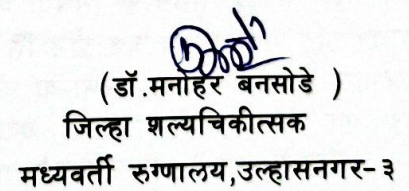 (डॉ.मनोहर बनसोडे )
जिल्हा शल्यचिकीत्सक
मध्यवर्ती रुग्णालय,उल्हासनगर-३